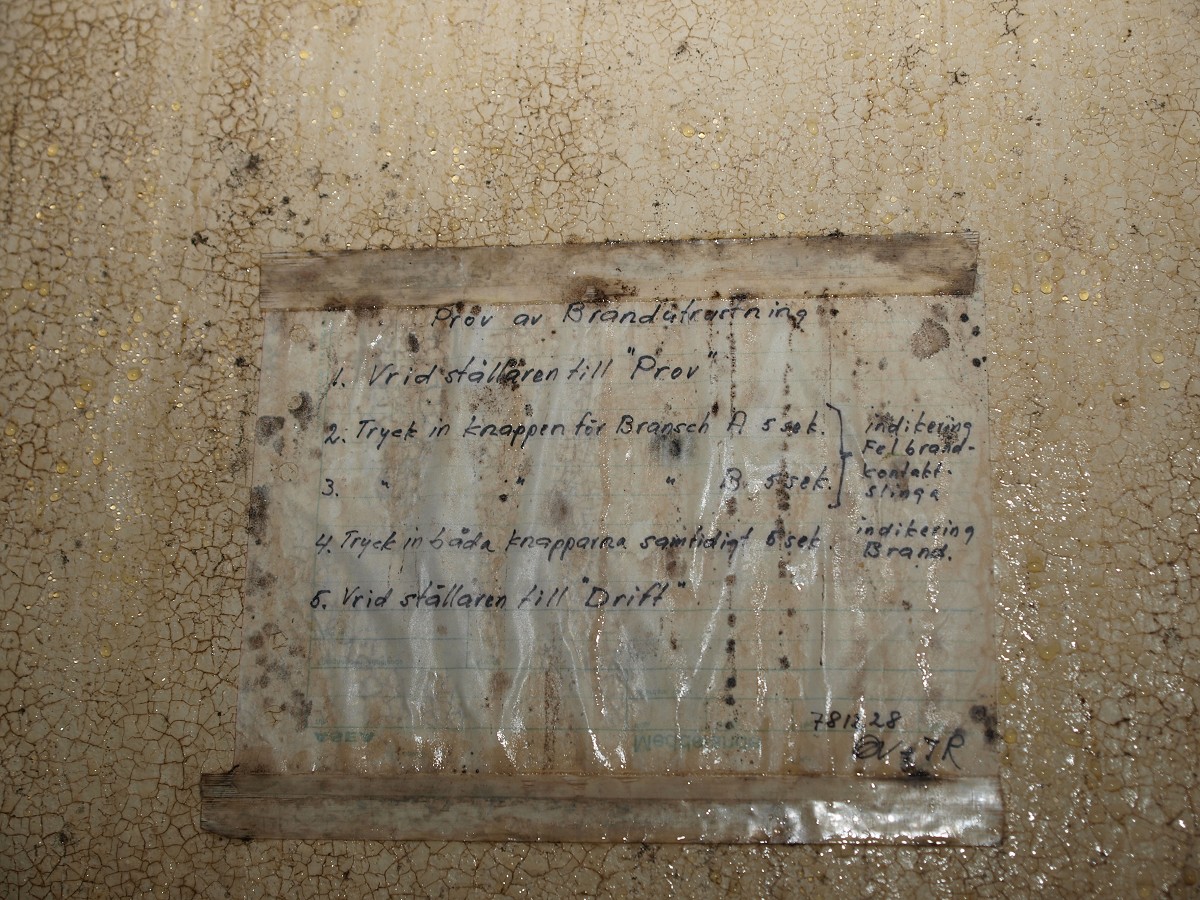 Prov av Brandutrustning
1. Vrid ställaren till "Prov"
2. Tryck in knappen för Bransch A 5 sek.
3. " " " B 5 sek.
indikering
Felbrand-
kontakt-
slinga
4. Tryck in båda knapparna samtidigt 5 sek.
indikering
Brand.
5. Vrid ställaren till "Drift"
781228
ASEA
Meddelande